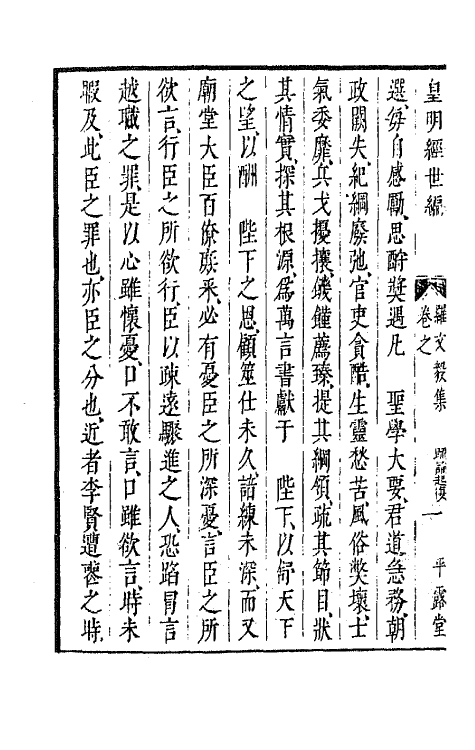 皇明經世編　羅文毅集　卷之　疏論起復　一　平露堂
選、每自感勵、思酧奬遇凡　聖學大要、君道急務、朝
政闕失、紀綱廢弛、官吏貪酷、生靈愁苦、風俗獘壞、士
氣委靡、兵戈擾攘、饑饉薦臻、提其綱領、疏其節目、狀
其情實、探其根源、爲萬言書獻于　陛下、以舒天下
之望、以酬　陛下之恩、顧筮仕未久、諳練未深、而又
廟堂大臣百僚庶釆、必有憂臣之所深憂、言臣之所
欲言、行臣之所欲行、臣以疎遠驟進之人、恐蹈冒言
越職之罪、是以心雖懷憂、口不敢言、口雖欲言、時未
暇及、此臣之罪也、亦臣之分也、近者李賢遭喪之時、